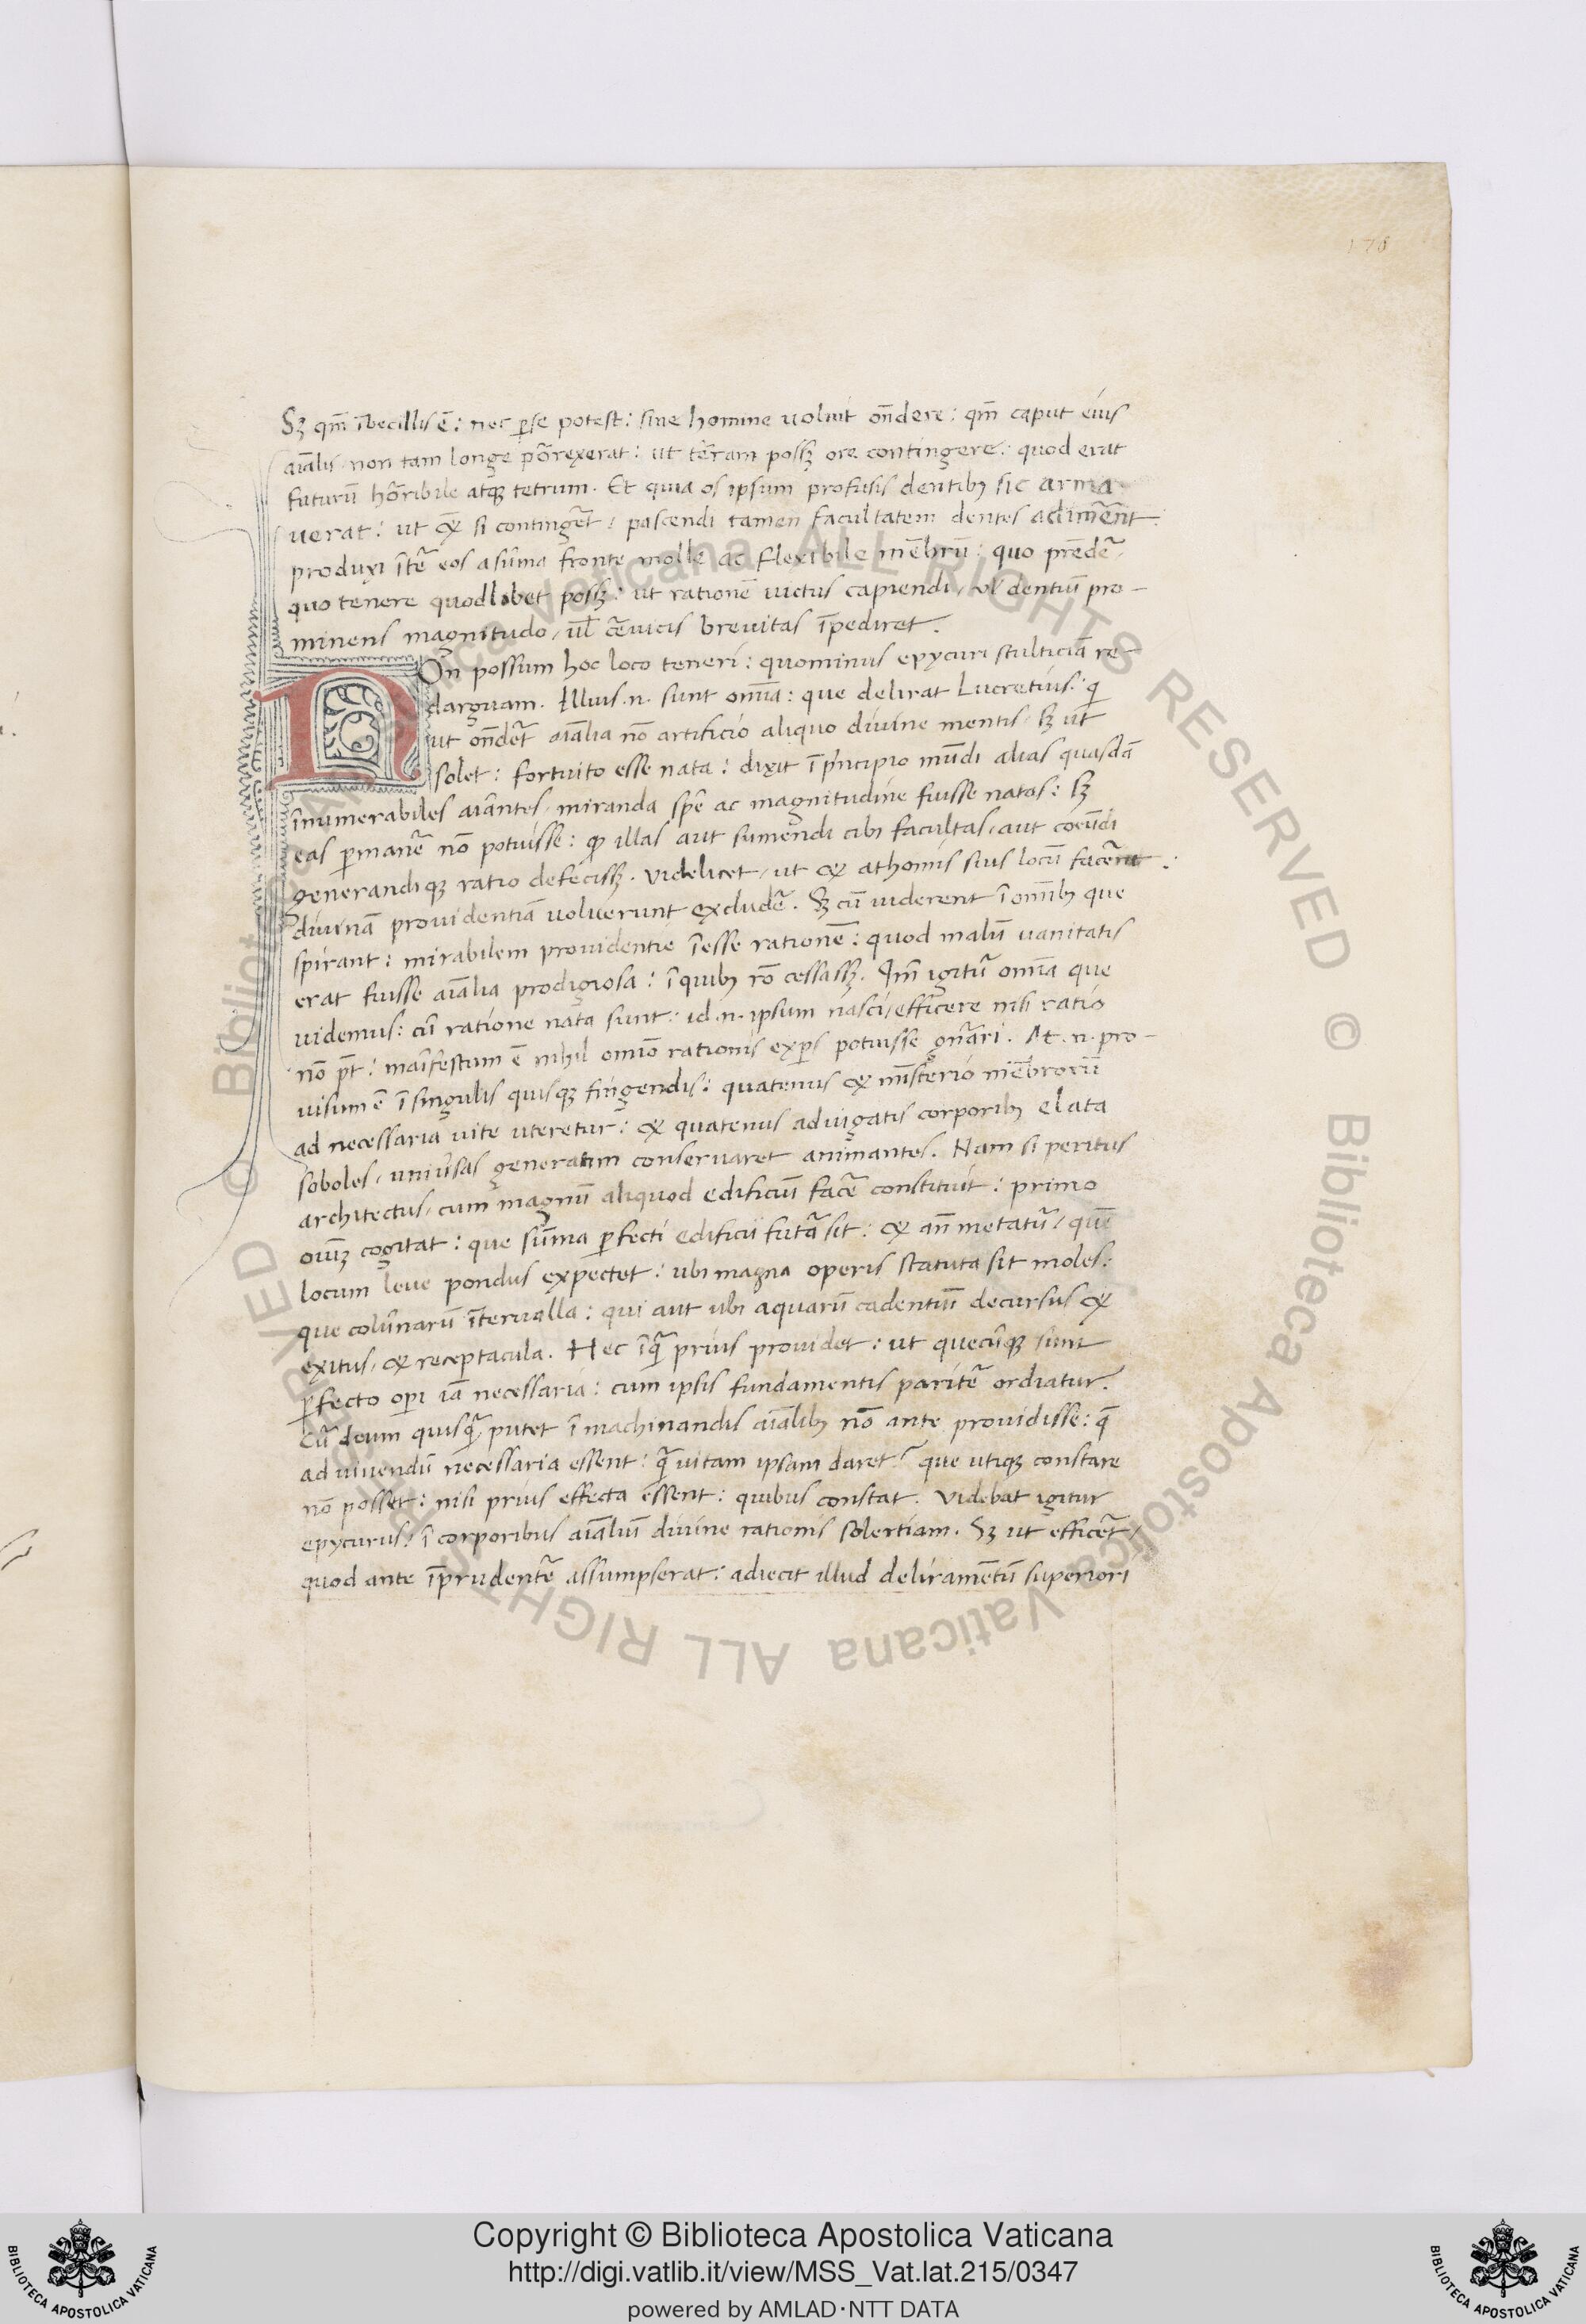 176
Sꝫ qm̄ ībecillis ē: nec ꝑse potest: sine homine uoluit on̄dere: qm̄ caput eius
aīalis non tam longe porrexerat: ut terram possꝫ ore contingere: quod erat
futurū horribile atqꝫ tetrum. Et quia os ipsum profusis dentibꝫ sic arma
uerat: ut & si contingēt: pascendi tamen facultatem dentes adimēnt
produxi īt̄ eos a sūma fronte molle ac flexibile mēbrū: quo prēdē/
quo tenere quodlibet possꝫ: ut rationē uictus capiendi/ ul̄ dentiū pro-
minens magnitudo/ ul̄ c̄uicis breuitas īpediret.
NOn possum hoc loco teneri: quominus epycuri stulticiā re-
darguam. Illius .n. sunt omīa: que delirat Lucretius: qi
ut on̄det aīalia nō artificio aliquo diuine mentis/ sꝫ ut
solet: fortuito esse nata: dixit ī principio mūdi alias quasdā
īnumerabiles aīantes/ miranda spē ac magnitudine fuisse natas: sꝫ
eas ꝑmanē nō potuisse: qꝫ illas aut sumendi cibi facultas/ aut coeūdi
generandiqꝫ ratio defecissꝫ. videlicet/ ut & athomis suis locū facēnt:
diuinā prouidentiā uoluerunt excludē. Sꝫ cū uiderent ī omībꝫ que
spirant: mirabilem prouidentie īesse rationē: quod malū uanitatis
erat fuisse aīalia prodigiosa: ī quibꝫ rō cessassꝫ. Im̄ igitur omīa que
uidemus: cū ratione nata sunt: id .n. ipsum nasci/ efficere nisi ratio
nō pt̄: maīfestum ē nihil omīo rationis expers potuisse gnāri. At .n. pro-
uisum ē ī singulis quisqꝫ fingendis: quatenus & mīsterio mēbrorū
ad necessaria uite uteretur: & quatenus adiugatis corporibꝫ elata
soboles/ uniūsas generatim conseruaret animantes. Nam si peritus
architectus/ cum magnū aliquod edificiū facē constituit: primo
oīuꝫ cogitat: que sūma ꝑfecti edificii futā sit: & an̄ metatur/ quē
locum leue pondus expectet: ubi magna operis statuta sit moles:
que colūnarū īterualla: qui aut ubi aquarū cadentiū decursus &
exitus/ & receptacula. Hec īquā prius prouidet: ut quecūqꝫ sunt
ꝑfecto opi iā necessaria: cum ipsis fundamentis paritē ordiatur.
Cū deum quisquā putet ī machinandis aīalibꝫ nō ante prouidisse: q̄
ad uiuendū necessaria essent: quā uitam ipsam daret? que utiqꝫ constare
nō posset: nisi prius effecta essent: quibus constat. Videbat igitur
epycurus/ ī corporibus aīaliū diuine rationis solertiam. Sꝫ ut efficet/
quod ante īprudentē assumpserat: adiecit illud deliramētū superiori
Copyright © Biblioteca Apostolica Vaticana
http://digi.vatlib.it/view/MSS_Vat.lat.215/0347
powered by AMLAD·NTT DATA
BIBLIOTECA APOSTOLICA VATICANA
BIBLIOTECA APOSTOLICA VATICANA
© Biblioteca Apostolica Vaticana ALL RIGHTS RESERVED © Biblioteca Apostolica Vaticana ALL RIGHTS RESERVED